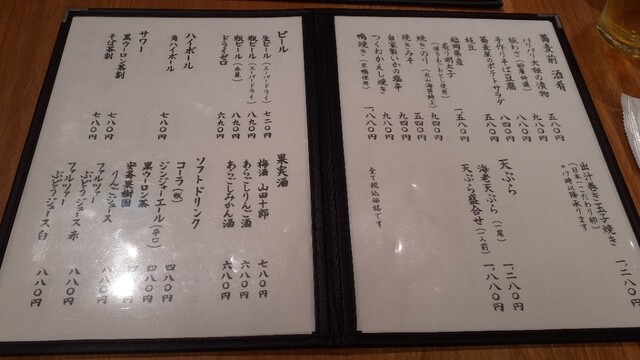 蕎麦前 酒肴
パリパリ大根の漬物 五八〇円
板わさ（鈴廣特選） 九八〇円
手作りそば豆腐 七八〇円
蕎麦屋のポテトサラダ 八四〇円
枝豆 五八〇円
福岡県産
炙り明太子 一、五八〇円
焼きのり（丸山海苔特上） 九四〇円
焼きみそ
自家製いかの塩辛 九四〇円
つくねくわえし焼き 九八〇円
鴨焼き（京鴨使用） 一、八八〇円
出汁巻き玉子焼き 一、二八〇円
（日本一こだわり卵）
*17時以降承ります
天ぷら
海老天ぷら（二尾） 一、二八〇円
天ぷら盛合せ（一人前） 一、八八〇円
全て税込価格です
ビール
生ビール（スーパードライ） 七二〇円
瓶ビール（スーパードライ） 八九〇円
瓶ビール（赤星） 八九〇円
ドライゼロ 六九〇円
ハイボール
角ハイボール 七八〇円
サワー
黒ウーロン茶割 七八〇円
そば茶割 七八〇円
果実酒
梅酒 山田十郎 七八〇円
あらごしりんご酒 六八〇円
あらごしみかん酒 六八〇円
ソフトドリンク
コーラ（瓶） 四八〇円
ジンジャーエール（辛口） 四八〇円
黒ウーロン茶 四八〇円
安斎果樹園
りんごジュース 八八〇円
ファルツァー
ぶどうジュース 赤 八八〇円
ファルツァー
ぶどうジュース 白 八八〇円